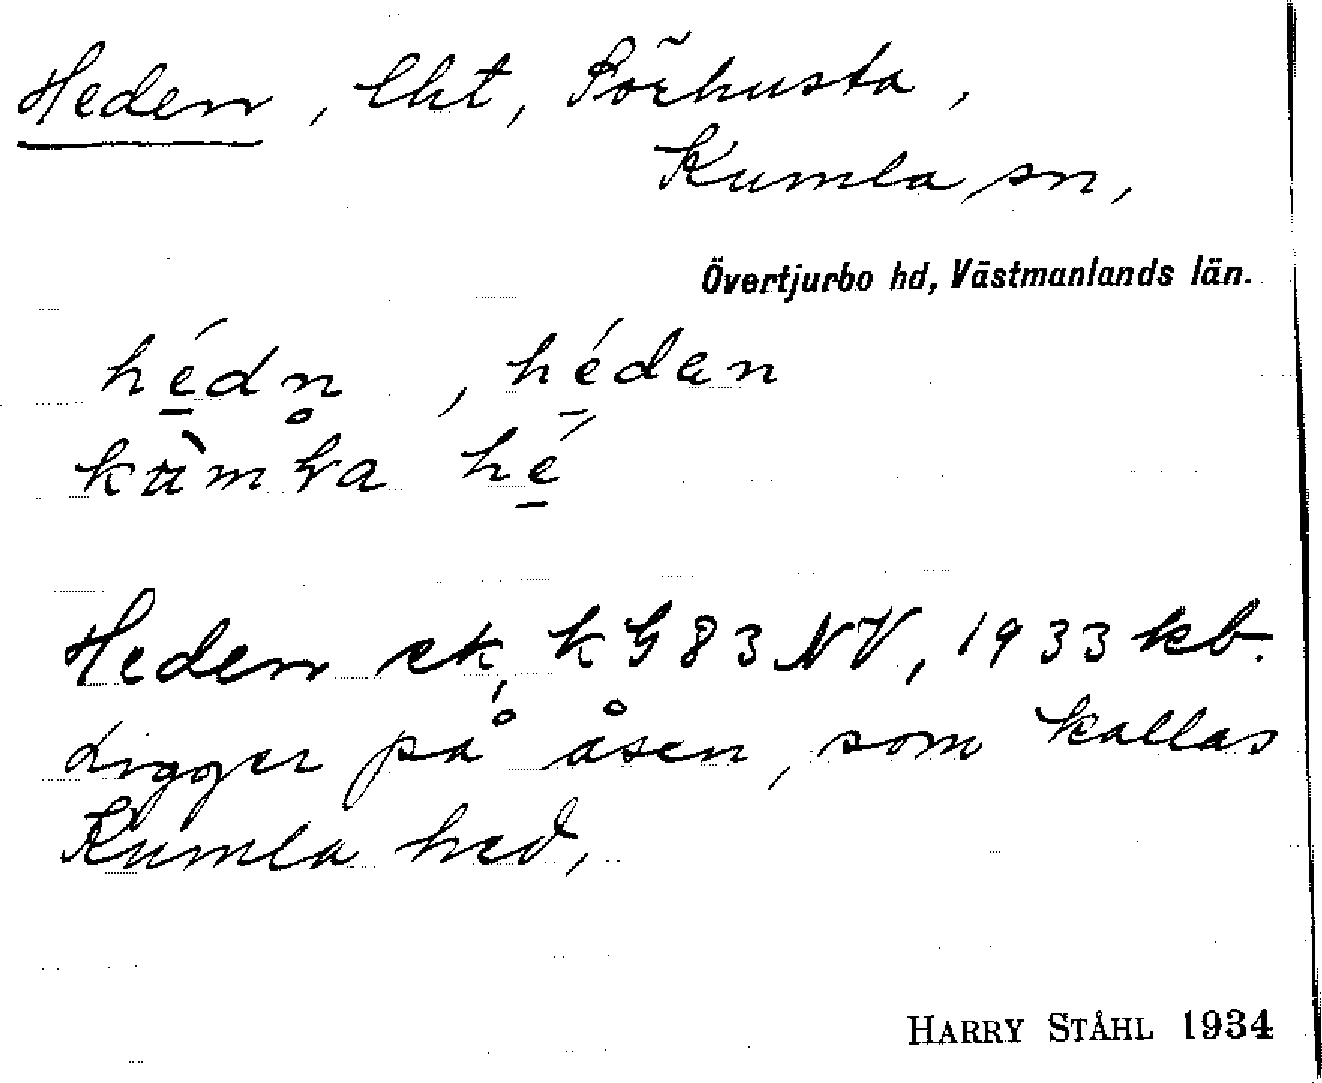 Heden, lht, Sörhusta,
Kumla sn,
Övertjurbo hd, Västmanlands län.
hédn̥, hédan
kùmɽa hé
Heden ek, k G 83 NV, 1933 kb.
Ligger på åsen, som kallas
Kumla hed,
HARRY STÅHL 1934